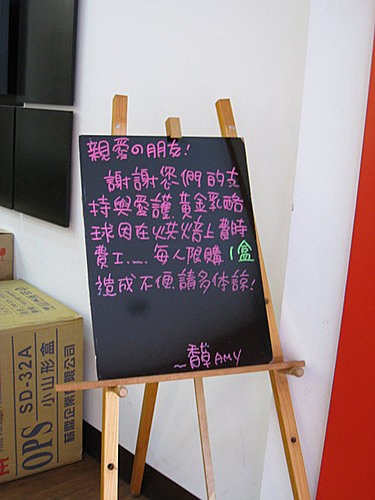 親愛の朋友!
謝謝您們的支
持與愛護,黃金乳酪
球因在烘焙上費時
費工…… 每人限購1盒
造成不便請多体諒!
~馥AMY
OPS
SD-32A
小山形盒